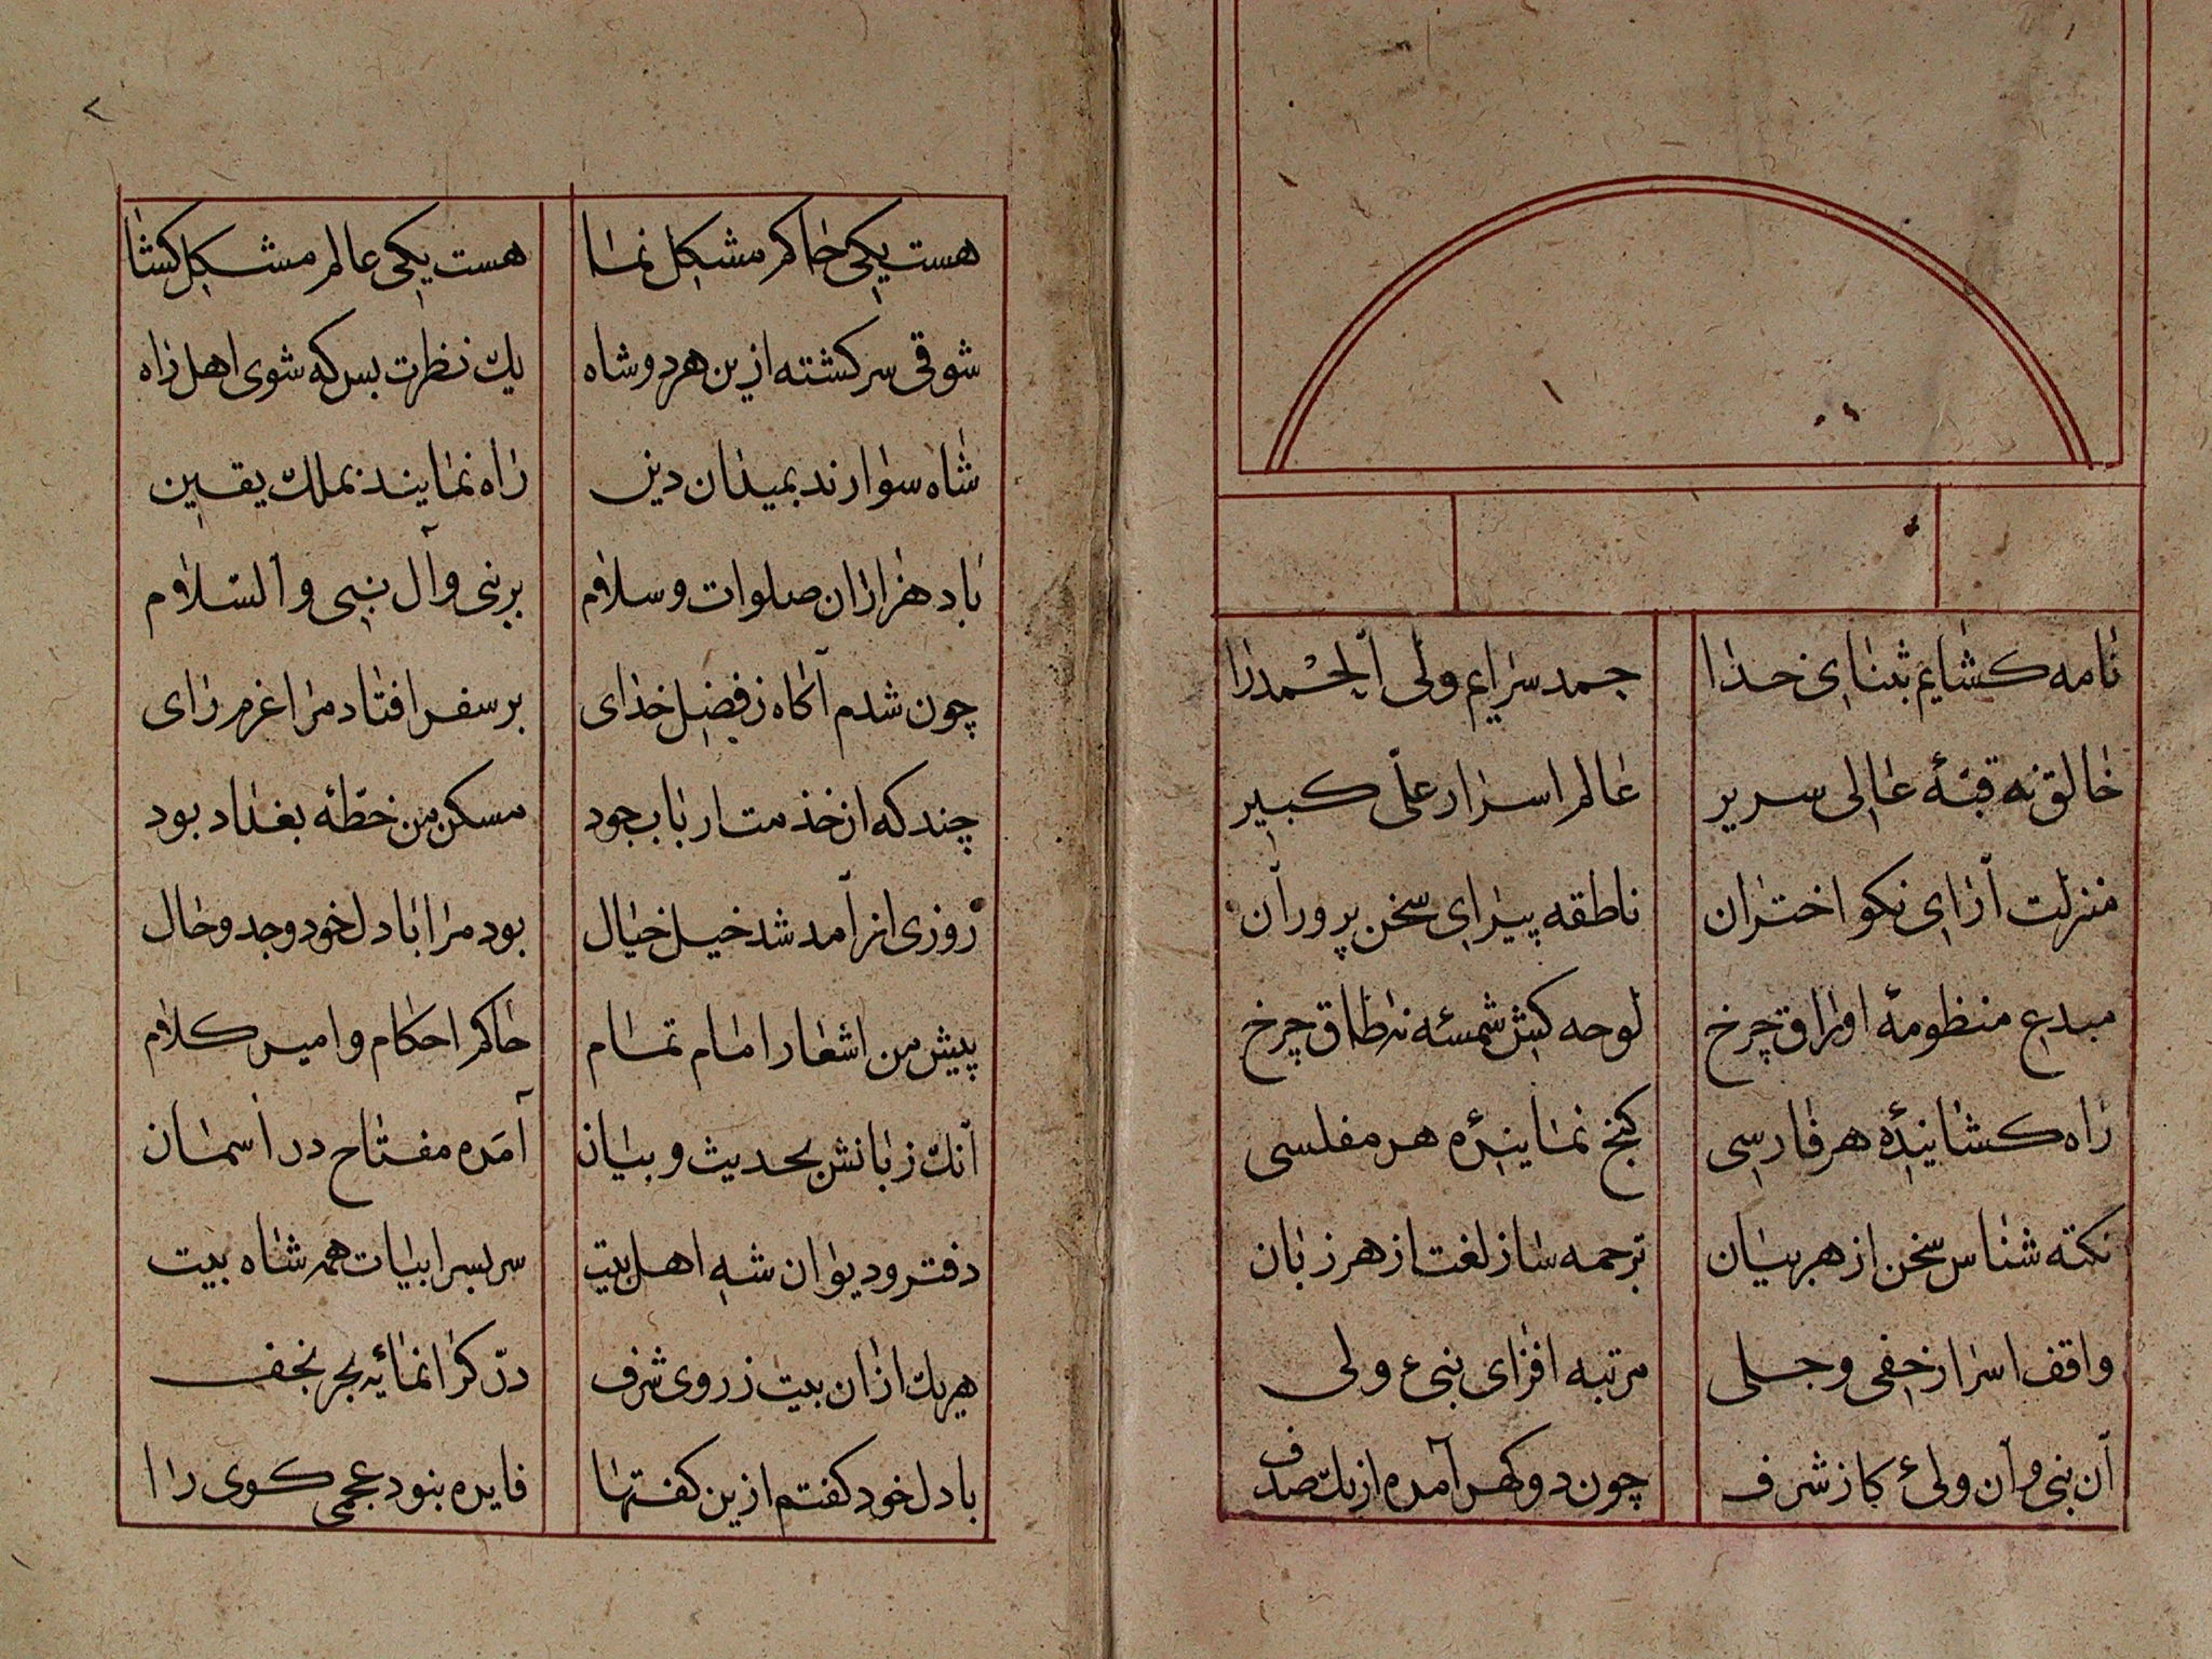 نامه کشایم بثنای خدا حمد سرایم ولی الحمد را
خالق نه قبّهٔ عالی سریر عالم اسرار علیّ کبیر
منزلت آرای نکو اختران ناطقه پیرای سخن پروران
مبدع منظومهٔ اوراق چرخ لوحه کش شمسهٔ نه طاق چرخ
راه کشایندهٔ هر فارسی کنج نمایندهٔ هر مفلسی
نکته شناس سخن از هر بیان ترجمه ساز لغت از هر زبان
واقف اسرار خفی و جلی مرتبه افزای نبی ع ولی
آن نبی و آن ولیٔ کاز شرف چون دو کهر آمده از یک صدف
۲
هست یکی حاکم مشکل نما هست یکی عالم مشکل کشا
شوقی سرکشته ازین هر دو شاه یک نظرت بس که شوی اهل راه
شاه سوارند بمیدان دین راه نمایند بملک یقین
باد هزاران صلوات و سلام بر نبی و آل نبی والسّلام
چون شدم آکاه ز فضل خدای بر سفر افتاد مرا عزم رای
چند که از خدمت ارباب جود مسکن من خطّهٔ بغداد بود
روزی از آمد شد خیل خیال بود مرا با دل خود وجد و حال
پیش من اشعار امام تمام حاکم احکام و امیر کلام
آنک زبانش بحدیث و بیان آمده مفتاح در آسمان
دفتر و دیوان شه اهل بیت سر بسر ابیات همه شاه بیت
هر یک ازان بیت ز روی شرف درّ کرانمایهٔ بحر نجف
با دل خود کفتم ازین کفتها فایده نبود عجمی کوی را